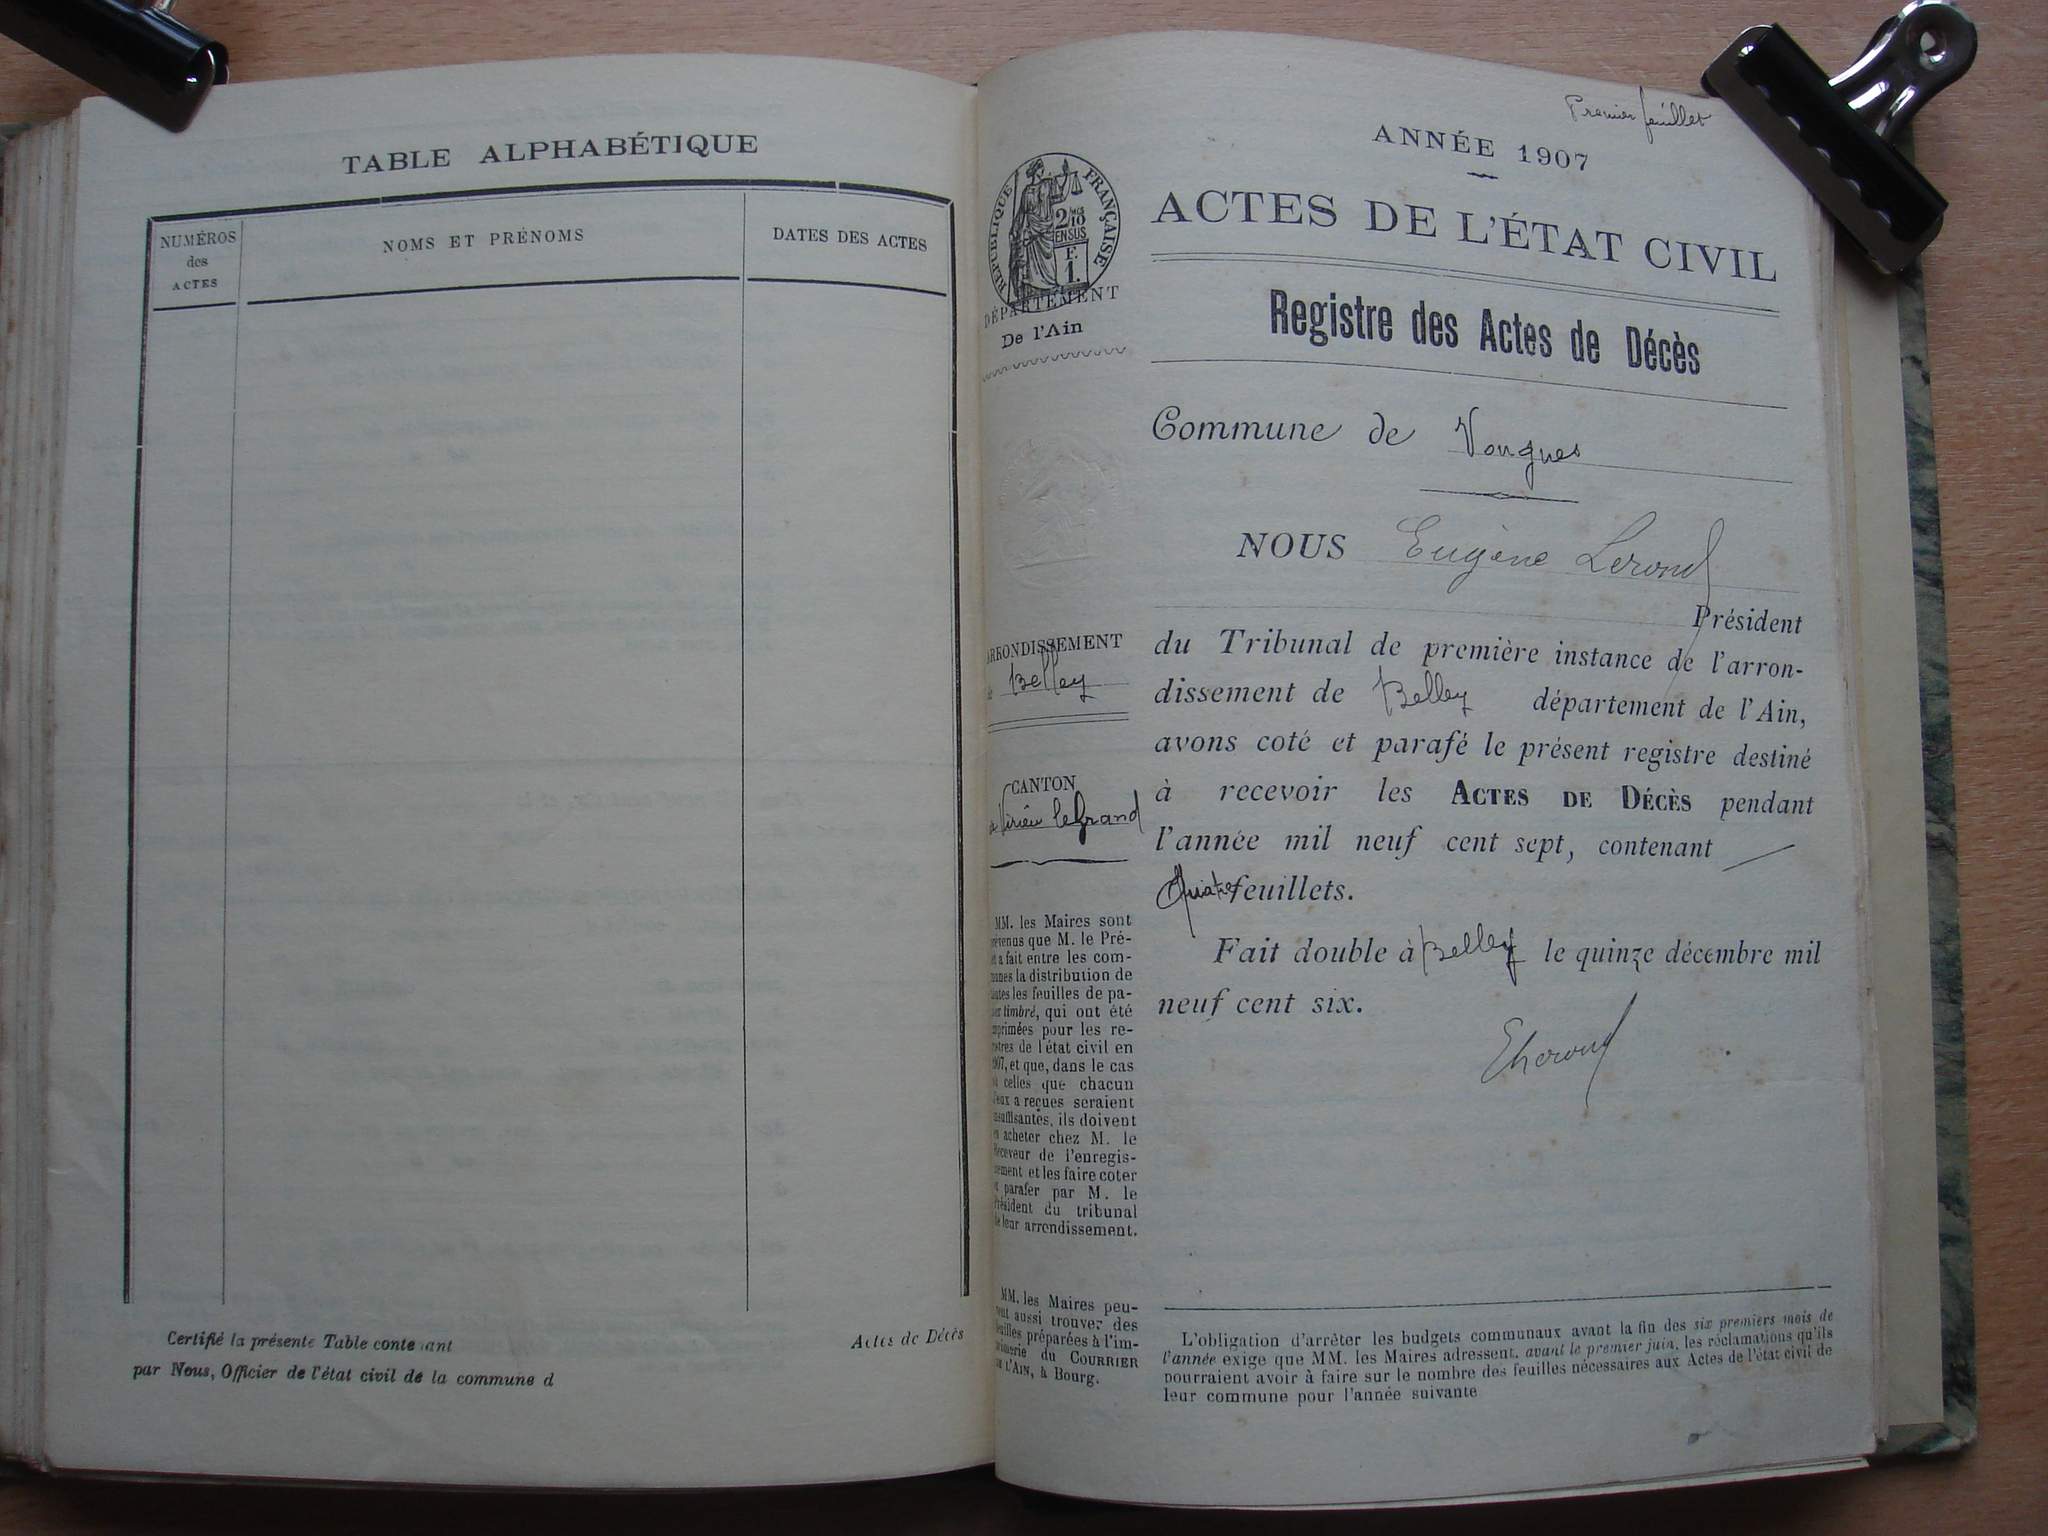 TABLE ALPHABÉTIQUE
NUMÉROS
des
ACTES
NOMS ET PRÉNOMS
DATES DES ACTES
Certifié la présente Table contenant
par Nous, Officier de l'état civil de la commune d
Actes de Décès
Premier feuillet
ANNÉE 1907
ACTES DE L'ÉTAT CIVIL
Registre des Actes de Décès
Commune de Vongnes
NOUS Eugène Lerond
Président
du Tribunal de première instance de l'arron-
dissement de Belley département de l'Ain,
avons coté et parafé le présent registre destiné
à recevoir les ACTES DE DÉCÈS pendant
l'année mil neuf cent sept, contenant
Quatre feuillets.
Fait double à Belley le quinze décembre mil
neuf cent six.
ELerond
L'obligation d'arrêter les budgets communaux avant la fin des six premiers mois de
l'année exige que MM. les Maires adressent, avant le premier juin, les réclamations qu'ils
pourraient avoir à faire sur le nombre des feuilles nécessaires aux Actes de l'état civil de
leur commune pour l'année suivante
RÉPUBLIQUE FRANÇAISE
2/10
EN SUS
F.
1.
DÉPARTEMENT
De l'Ain
ARRONDISSEMENT
de Belley
CANTON
de Virieu le Grand
MM. les Maires sont
prévenus que M. le Pré-
et a fait entre les com-
munes la distribution de
toutes les feuilles de pa-
pier timbré, qui ont été
imprimées pour les re-
gistres de l'état civil en
1907, et que, dans le cas
où celles que chacun
d'eux a reçues seraient
insuffisantes, ils doivent
en acheter chez M. le
Receveur de l'enregis-
trement et les faire coter
et parafer par M. le
Président du tribunal
de leur arrondissement.
MM. les Maires peu-
vent aussi trouver des
feuilles préparées à l'im-
primerie du COURRIER
DE L'AIN, à Bourg.